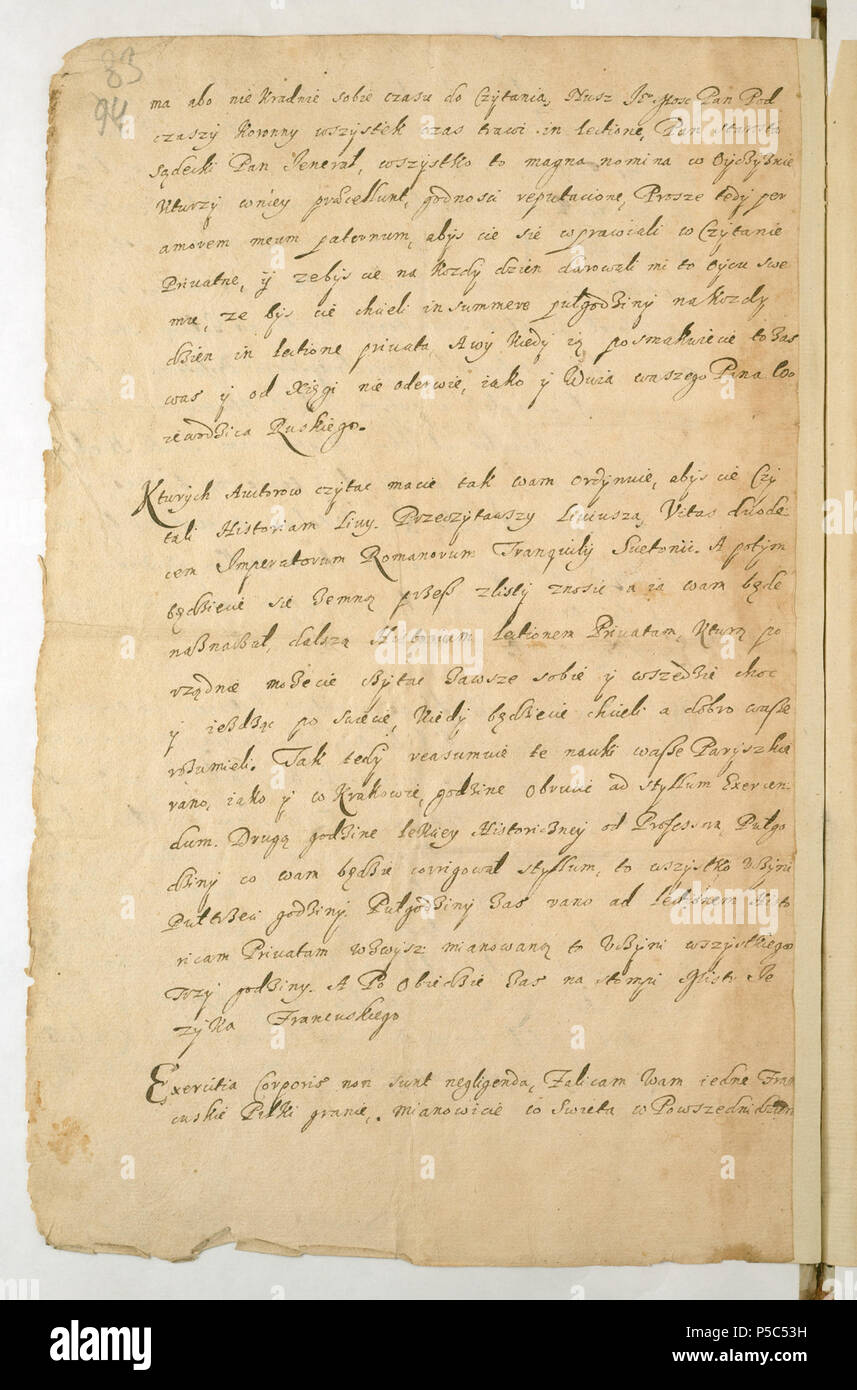 83
94
ma abo nie kradnie sobie czasu do Czytania, Nusz Pan Pod
czaszy Koronny wszystek czas trawi in lectione, Pan Starosta
sądecki Pan Jenerał, wszystko to magna nomina w Oyczyznie
Kturzy wniey præcellunt, godnosci reputacione, Prosze tedy per
amorem meum paternum, abys cie sie wprawiali w Czytanie
Privatne, y zebys cie na kozdy dzien darowali mi to Oycu swe
mu, ze bys cie chcieli insummere pułgodziny na kozdy
dzien in lectione privata, A wy kiedy posmakuiecie to zas
was y od Xięgi nie oderwie, iako y Wuia waszego Pana Wo
iewodzica Ruskiego.
Kturych Autorow czytac macie tak wam ordynuie, abys cie Czy
tali Historiam Livy. Przeczytawszy Liviusza, Vitas duode-
cem Imperatorum Romanorum Tranquily Suetonii. A potym
będziecie sie zemną przeß listy znosic a ia wam będe
naßnaczał, dalszą Historicam lectionem Privatam, Kturą po
rządnie mozecie czytac zawsze sobie y wszedzie choc
y iezdząc po swiecie, kiedy będziecie chcieli a dobro waße
rozumieli. Tak tedy reasumuie te nauki waße Paryszkie
rano, iako y w Krakowie, godzine obrucic ad styllum Exercen-
dum. Drugą godzine lekciey Historiczney od Professora, Pułgo
dziny co wam będzie corrigował styllum, to wszystko uczyni
Puł trzeci godziny. Pułgodziny zas rano ad lectionem Histo
ricam Privatam wzwysz mianowaną to uczyni wszystkiego
Trzy godziny. A Po Obiedzie zas na stompi Mistr Ję
zyka Francuskiego
Exercitia Corporis non sunt negligenda, Zalicam Wam iedne Fran
cuskie Piłki granie, mianowicie co Swieta w Powszedni dzien
alamy
P5C53H
www.alamy.com